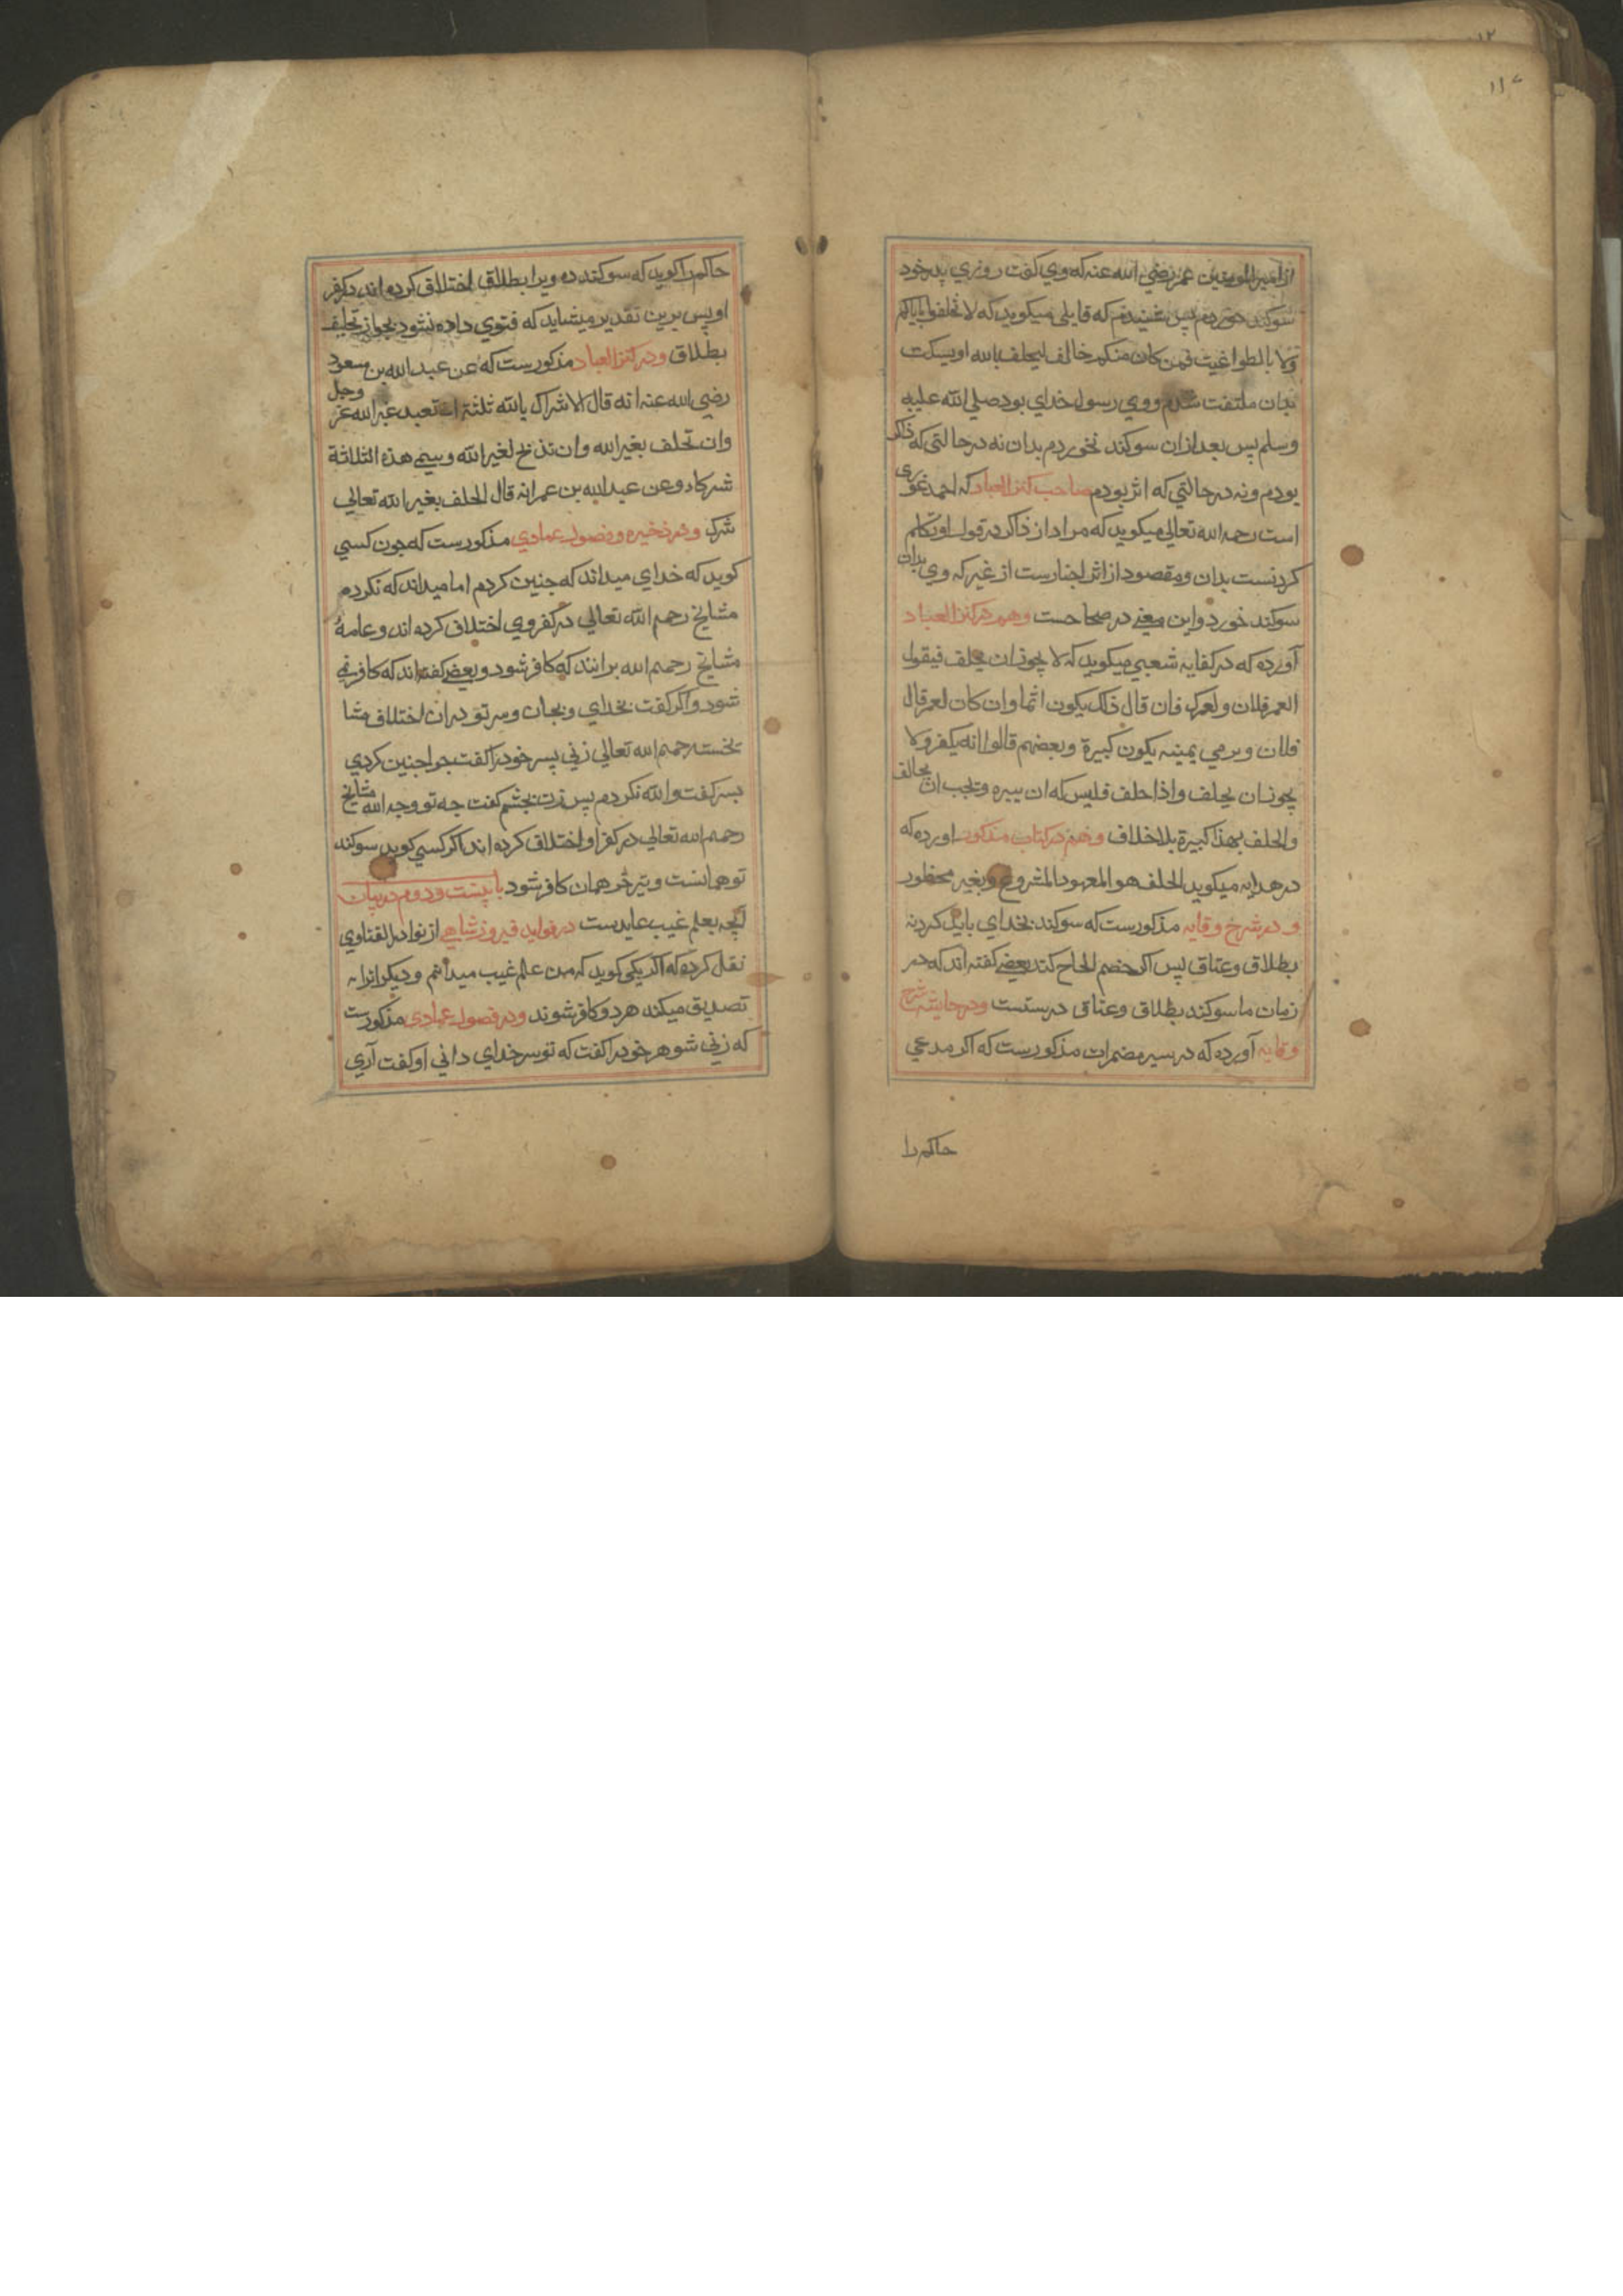 ۱۱۲
از امیر المومنین عمر رضی الله عنه که وی کفت روزی پدر خود
سوکند خوردم پس شنیدم که قایلی میکوید که لا تحلفوا بابایکم
ولا بالطواغیت فمن کان منکم حالف لیحلف بالله او یسکت
بدان ملتفت شدم ووی رسول خدای بود صلی الله علیه
وسلم پس بعد ازان سوکند نخوردم بدان نه در حالتی که ذاکر
بودم ونه در حالتی که اثر بودم صاحب کنز العباد که احمد غوری
است رحمه الله تعالی میکوید که مراد از ذاکر در قول او تکلم
کردنست بدان ومقصود از اثر اخبارست از غیر که وی بدان
سوکند خورد واین معنی در صحاحست وهم در کنز العباد
آورده که در کفایه شعبی میکوید که لا یجوز ان یحلف فیقول
العمر فلان ولعمرک فان قال ذلک یکون اثما وان کان لعمر قال
فلان وبرمی یمینه یکون کبیرة وبعضهم قالوا انه یکفر ولا
یجوز ان یحلف واذا حلف فلیس له ان یبره وتجب ان یخالف
والحلف بهذا کبیرة بلا خلاف وهم در کتاب مذکور اورده که
در هدایه میکوید الحلف هو المعهود المشروع وبغیر محظور
ودر شرح وقایه مذکورست که سوکند بخدای باید کرد نه
بطلاق وعتاق پس اکر خصم الحاح کند بعضی کفته اند که در
زمان ما سوکند بطلاق وعتاق درستست ودر حاشیه شرح
وقایه آورده که در سیر مضمرات مذکورست که اکر مدعی
حاکم را
حاکم را کوید که سوکند ده ویرا بطلاق اختلاف کرده اند در کفر
او پس برین تقدیر میشاید که فتوی داده نشود بجواز تحلیف
بطلاق ودر کنز العباد مذکورست که عن عبد الله بن مسعود
رضی الله عنه انه قال الاشراک بالله ثلثة ان تعبد غیر الله عز وجل
وان تحلف بغیر الله وان تذبح لغیر الله وسمی هذه الثلاثة
شرکا وعن عبد الله بن عمر انه قال الحلف بغیر الله تعالی
شرک ودر ذخیره وفصول عمادی مذکورست که چون کسی
کوید که خدای میداند که چنین کردم اما میداند که نکردم
مشایخ رحمهم الله تعالی در کفر وی اختلاف کرده اند وعامهٔ
مشایخ رحمهم الله برانند که کافر شود وبعضی کفته اند که کافر نمی
شود واکر کفت بخدای وبجان وسر تو دران اختلاف مشا
یخست رحمهم الله تعالی زنی پسر خود را کفت چرا چنین کردی
پسر کفت والله نکردم پس زن بخشم کفت چه تو وچه الله مشایخ
رحمهم الله تعالی در کفر او اختلاف کرده اند اکر کسی کوید سوکند
تو همانست وتیز خر همان کافر شود باب بیست ودوم در بیان
آنچه بعلم غیب عایدست در فواید فیروزشاهی از نوادر الفتاوی
نقل کرده که اکر یکی کوید که من علم غیب میدانم ودیکر انرا
تصدیق میکند هر دو کافر شوند ودر فصول عمادی مذکورست
که زنی شوهر خود را کفت که تو سر خدای دانی او کفت آری